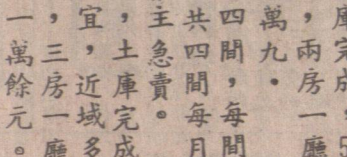 庫完成，5
，兩房一廳
萬九．
四間，每間
共四間每月
主急賣。
，土庫完成
宜，近域多
，三房一廳
一萬餘元。